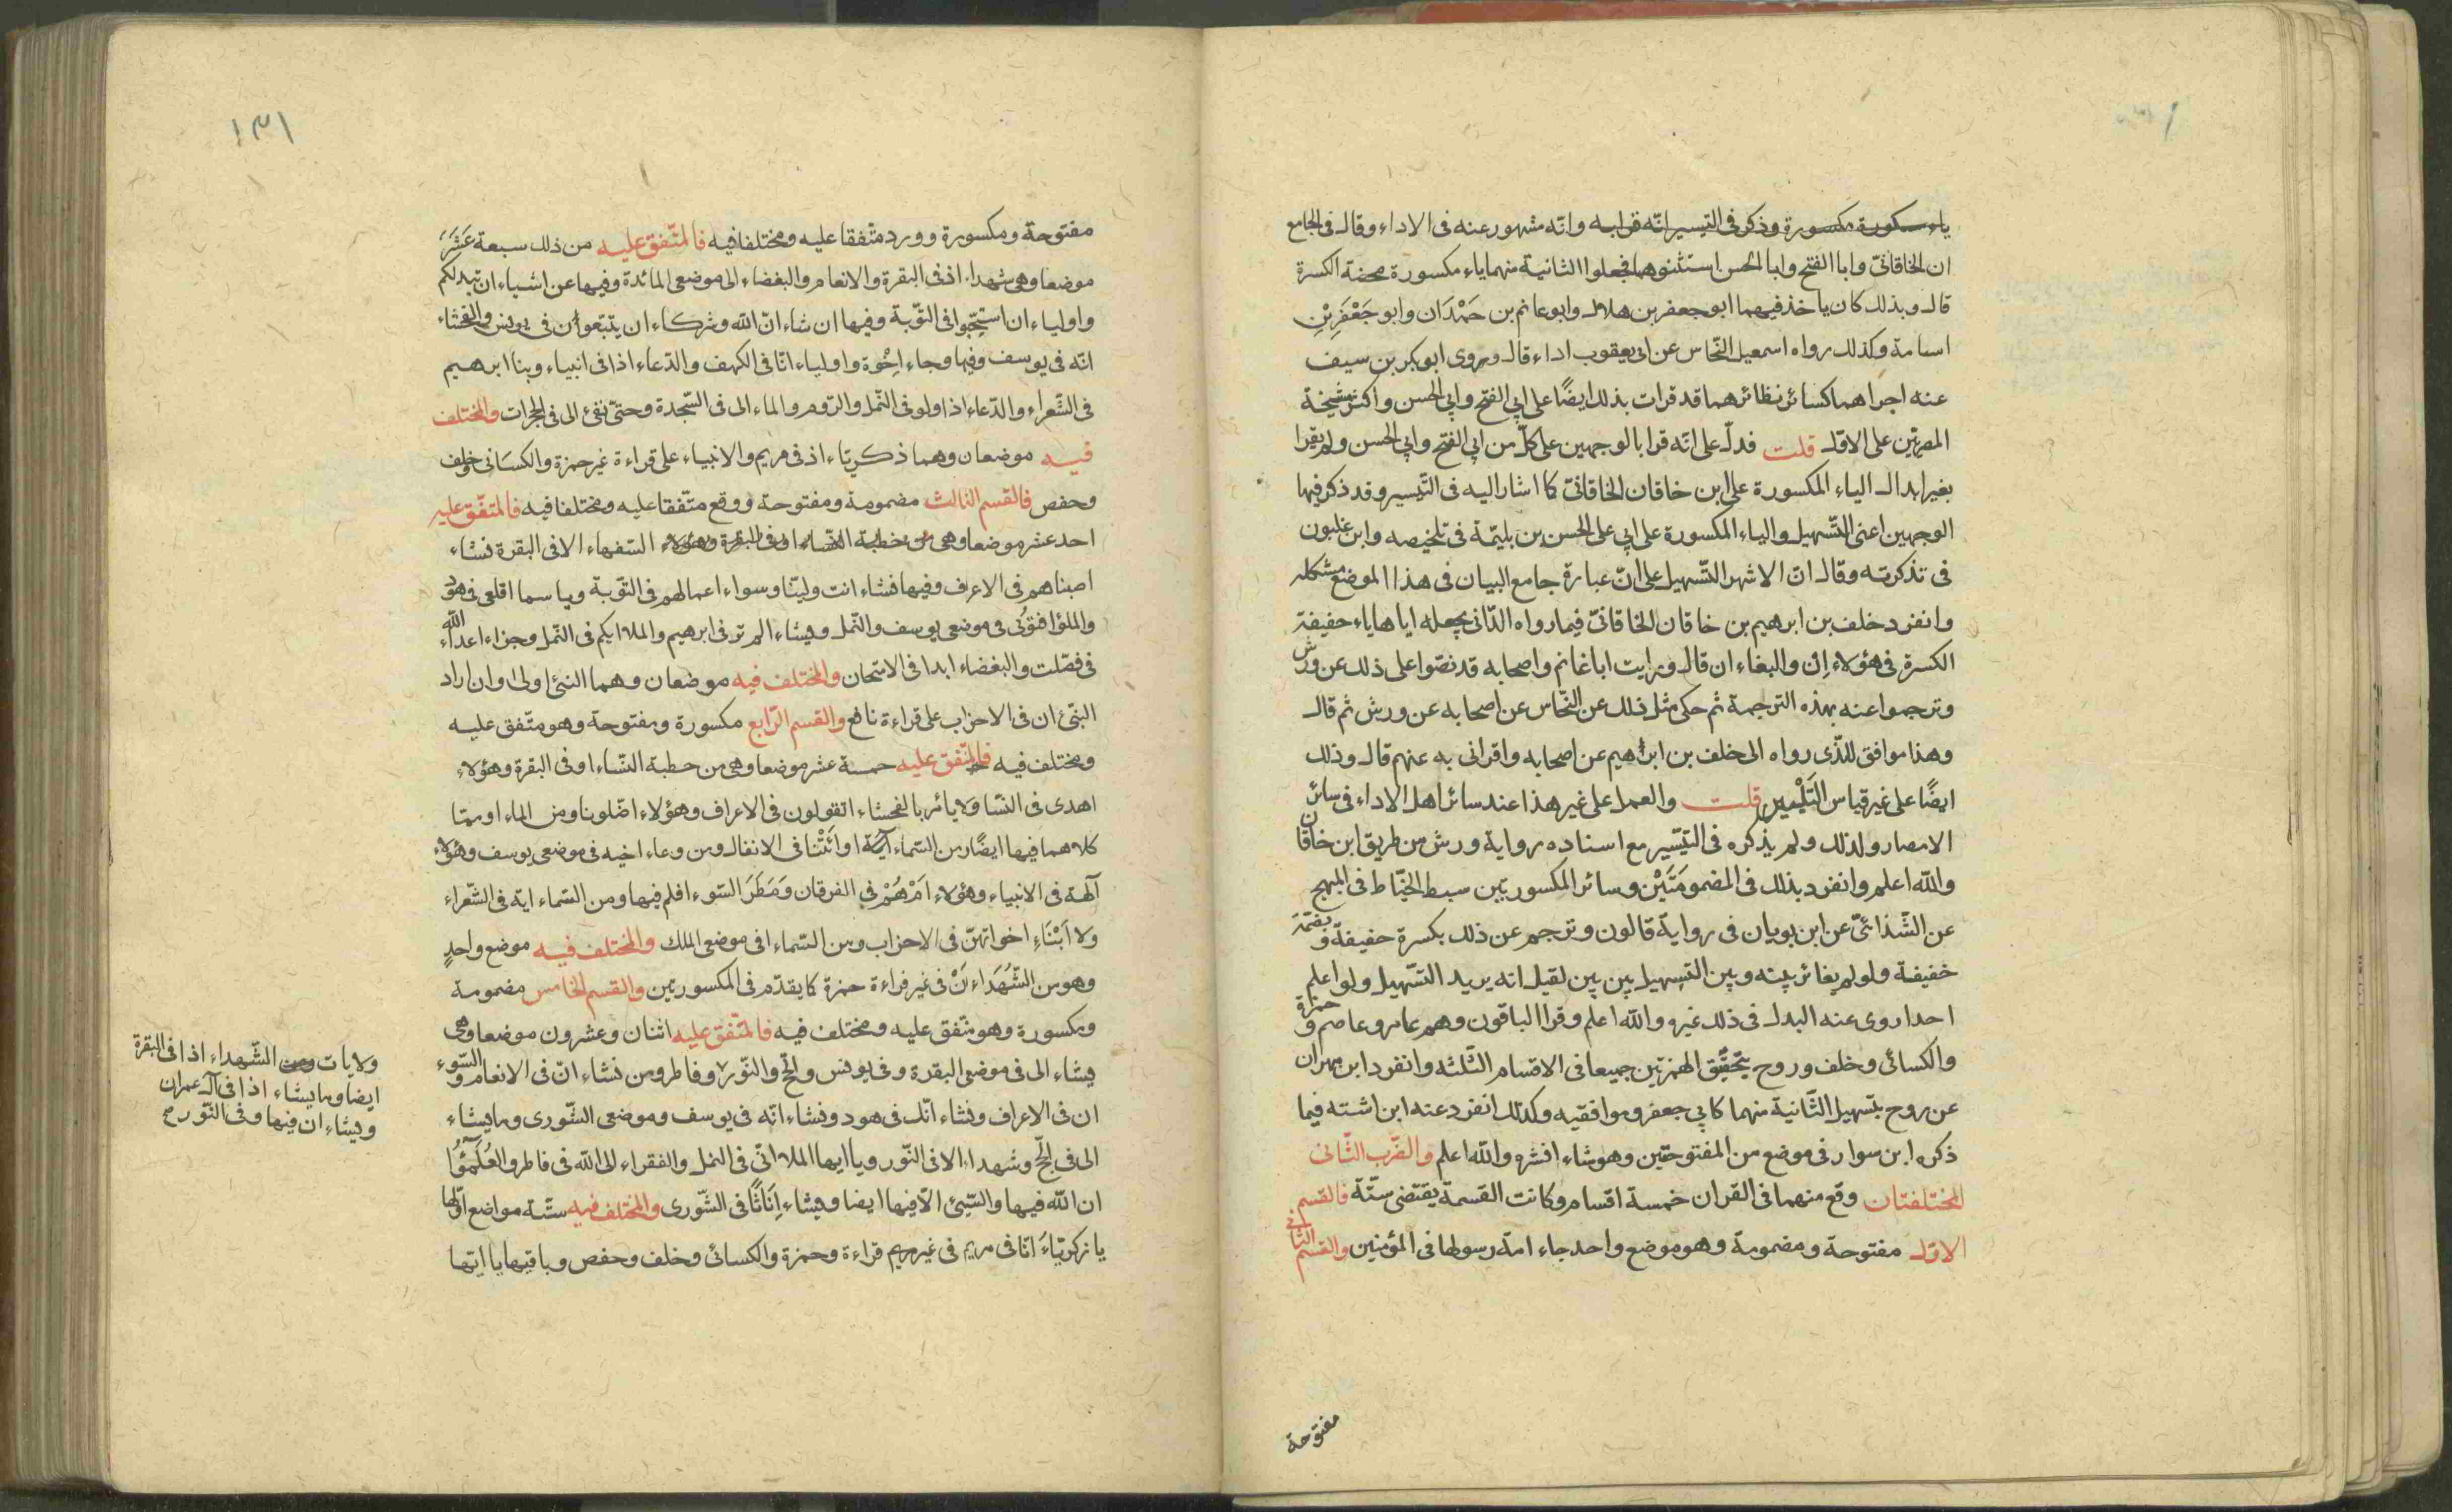 ياء مكسورة مكسورة وذكر فى التيسير انّه قرا به وانّه مشهور عنه فى الاداء وقال فى الجامع
ان الخاقانىّ وابا الفتح وابا الحسن استثنوهما فجعلوا الثانية منهما ياء مكسورة محضة الكسرة
قال وبذلك كان ياخذ فيهما ابو جعفر بن هلال وابو غانم بن حَمْدَان وابو جَعْفَرِبْنِ
اسامة وكذلك رواه اسمعيل النّحاس عن ابى يعقوب اداء قال وروى ابو بكر بن سيف
عنه اجراهما كسائر نظائرهما قد قرات بذلك ايضًا على ابي الفتح وابي الحسن واكثر مشيخة
المصريّين على الاوّل قلت فدلّ على انّه قرا بالوجهين على كلّ من ابي الفتح وابي الحسن ولم يقرا
بغير ابدال الياء المكسورة على ابن خاقان الخاقانىّ كما اشار اليه فى التّيسير وقد ذكر فيها
الوجهين اعنى التّسهيل والياء المكسورة على ابي على الحسن بن بليّمة فى تلخيصه وابن غلبون
فى تذكرته وقال انّ الاشهر التّسهيل على انّ عبارة جامع البيان فى هذا الموضع مشكله
وانفرد خلف بن ابرهيم بن خاقان الخاقانىّ فيما رواه الدّانى بجعله اياها ياء خفيفة
الكسرة فى هؤلاء اِن والبغاء ان قال ورايت ابا غانم واصحابه قد نصّوا على ذلك عن ورش
وترجموا عنه بهذه الترجمة ثم حكى مثل ذلك عن النّحاس عن اصحابه عن ورش ثم قال
وهذا موافق للذّى رواه الى خلف بن ابرهيم عن اصحابه واقرانى به عنهم قال وذلك
ايضًا على غير قياس التَلْيين قلت والعمل على غير هذا عند سائر اهل الاداء فى سائر
الامصار ولذلك ولم يذكره فى التيّسير مع اسناده رواية ورش من طريق ابن خاقان
والله اعلم وانفرد بذلك فى المضمومَتَيْن وسائر المكسورتين سبط الخيّاط فى المبهج
عن الشّذائىّ عن ابن بويان فى رواية قالون وترجم عن ذلك بكسرة خفيفة وبضمّة
خفيفة ولو لم يغائر بينه وبين التسهيل بين بين لقيل انه يريد التسّهيل ولو اعلم
احدا روى عنه البدل فى ذلك غيره والله اعلم وقرا الباقون وهم عامر وعاصم وحمزة
والكسائى وخلف وروح بتحقّيق الهمزتين جميعا فى الاقسام الثّلثه وانفرد ابن مهران
عن روح بتسهيل الثّانية منهما كابي جعفر وموافقيه وكذلك انفرد عنه ابن اشته فيما
ذكره ابن سوار فى موضع من المفتوحتين وهو شاء انشره والله اعلم والضّرب الثّانى
المختلفتان وقع منهما فى القران خمسة اقسام وكانت القسمة يقتضى ستّة فالقسم
الاوّل مفتوحة ومضمومة وهو موضع واحد جاء امة رسولها فى المؤمنين والقسم الثّانى
مفتوحة
١٣١
مفتوحة ومكسورة وورد متّفقا عليه ومختلفا فيه فالمتّفق عليه من ذلك سبعة عَشَرَ
موضعا وهى شهداء اذ فى البقرة والانعام والبغضاء الى موضعى المائدة وفيها عن اشياء ان تبد لكم
واولياء ان استحبّوا فى التّوبة وفيها ان شاء انّ الله وشركاء ان يتّبعون فى يونس والفحشاء
انّه فى يوسف وفيها وجاء اِخْوة واولياء انّا فى الكهف والدّعاء اذا فى انبياء وبنا ابرهيم
فى الشّعراء والدّعاء اذا ولو فى النّمل والرّوم والماء الى فى السّجدة وحتّى تفئ الى فى الحجرات والمختلف
فيه موضعان وهما ذكريّاء اذ فى مريم والانبياء على قراءة غير حمزة والكسَائى وخلف
وحفص فالقسم الثالث مضمومة ومفتوحة ووقع متّفقا عليه ومختلفا فيه فالمتّفق عليه
احد عشر موضعا وهى من خطبة النّساء او فى البقرة وهؤلاء السّفهاء الا فى البقرة نشاء
اصبناهم فى الاعراف وفيها فنشاء انت وليّنا وسواء اعمالهم فى التّوبة ويا سما اقلعى فى هود
والملؤا افتونى فى موضعى يوسف والنّمل ويشاء الم تر فى ابرهيم والملاء ايكم فى النّمل وجزاء اعداء الله
فى فصّلت والبغضاء ابدا فى الامتحان والمختلف فيه موضعان وهما النبئ اولى وان اراد
النبّئ ان فى الاحزاب على قراءة نافع والقسم الرّابع مكسورة ومفتوحة وهو متّفق عليه
ومختلف فيه فالمتّفق عليه خمسة عشر موضعا وهى من خطبة النّساء او فى البقرة وهؤلاء
اهدى فى النّسا وَلا يأمر بالفحشاء اتقولون فى الاعراف وهؤلاء اضّلونا ومن الماء او ممّا
كلاهما فيها ايضًا ومن السّماء آية او ائَتْنا فى الانفال ومن وعاء اخيه فى موضعى يوسف وهؤلاء
آلهة فى الانبياء وهؤلاء اَمْ هُمْ في الفرقان وَمَطَرَ السّوء افلم فيها ومن السّماء اية فى الشّعراء
وَلا اَبْنَاءِ اخواتهنّ فى الاحزاب ومن السّماء ا فى موضعى الملك والمختلف فيه موضع واحدٍ
وهو من الشّهَدَاء اَنْ فى غير قراءة حمزة كما يقدّم فى المكسورتين والقسم الخامس مضمومة
ومكسورة وهو متّفق عليه ومختلف فيه فالمتّفق عليه اثنان وعشرون موضعا وهى
يشاء الى فى موضعى البقرة وفى يونس والحجّ والنّور وفاطر ومن نشاء انّ فى الانعام والسّوء
ان فى الاعراف ونشاء انّك فى هود ونشاء انّه فى يوسف وموضعى الشّورى وما يشاء
الى فى الحجّ وشهداء الا فى النّور ويا ايها الملا انّى فى النمل والفقراء الى الله فى فاطر والعُلَمٰؤُا
ان الله فيها والسّيئ الّا فيها ايضا ويشاء اِنَاثًا فى الشّورى والمختلف فيه ستّة مواضع اوّلها
يا زكريّاءَ انّا فى مريم فى غير مريم قراءة وحمزة والكسائىّ وخلف وحفص وباقيها يا ايّها
ولا يات ومن الشّهداء اذا فى البقرة
ايضا وما يشاء اذا فى آل عمران
ويشاء ان فيها وفى النّور صح